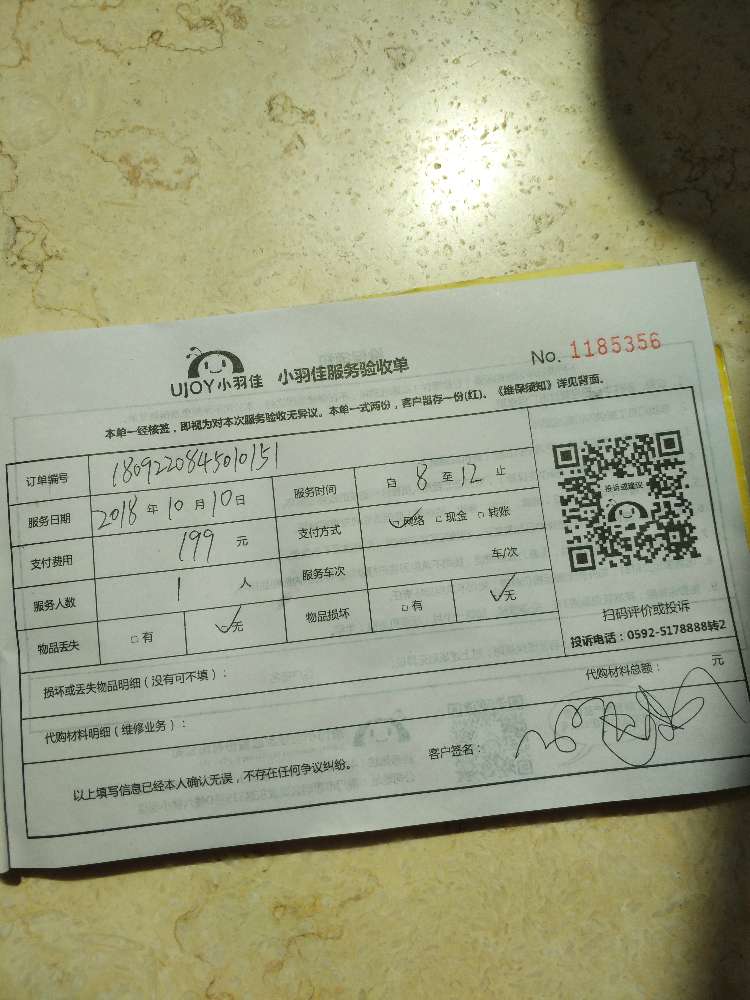 UJOY小羽佳 小羽佳服务验收单 No. 1185356
本单一经核签，即视为对本次服务验收无异议。本单一式两份，客户留存一份(红)、《维保须知》详见背面。
订单编号 1809220845010151
服务日期 2018 年 10 月 10 日 服务时间 自 8 至 12 止
支付费用 199 元 支付方式 ☑网络 □现金 □转账
服务人数 1 人 服务车次 车/次
物品丢失 □有 ☑无 物品损坏 □有 ☑无
投诉或建议
扫码评价或投诉
投诉电话：0592-5178888转2
损坏或丢失物品明细（没有可不填）：
代购材料明细（维修业务）： 代购材料总额： 元
以上填写信息已经本人确认无误，不存在任何争议纠纷。 客户签名：